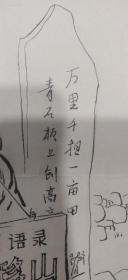 万里千担一亩田
青石板上创高产
语录
移山